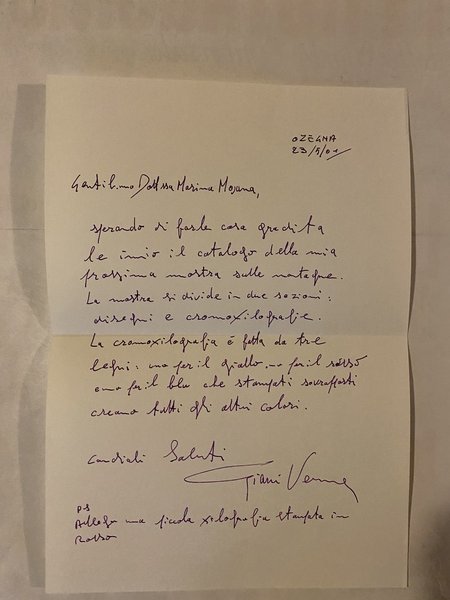 OZEGNA
23/5/01
Gentil.mo Dott.ssa Marina Mojana,
sperando di farle cosa gradita
le invio il catalogo della mia
prossima mostra sulle
La mostra si divide in due sezioni:
disegni e cromoxilografie.
La cromoxilografia è fatta da tre
legni: uno per il giallo, uno per il rosso
e uno per il blu che stampati sovrapposti
creano tutti gli altri colori.
Cordiali Saluti
Gianni Verna
PS
Allego una piccola xilografia stampata in
rosso